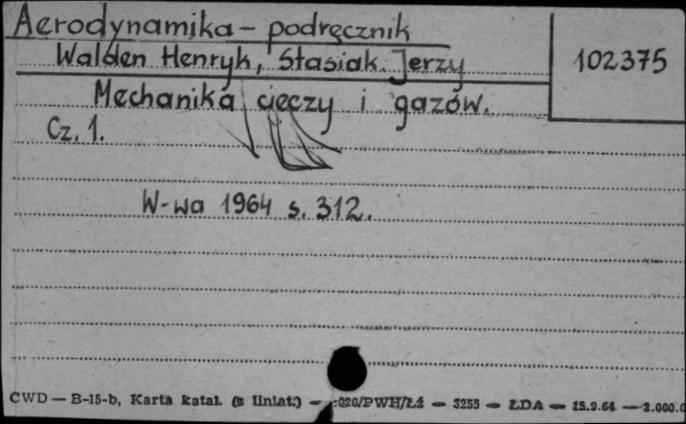 Aerodynamika - podręcznik
102375
Walden Henryk, Stasiak Jerzy
Mechanika cieczy i gazów.
Cz. 1.
W-wa 1964 s. 312.
CWD — B-15-b, Karta katal. (z liniat.) — 3255 — ŁDA — 15.9.64 — 2.000.0